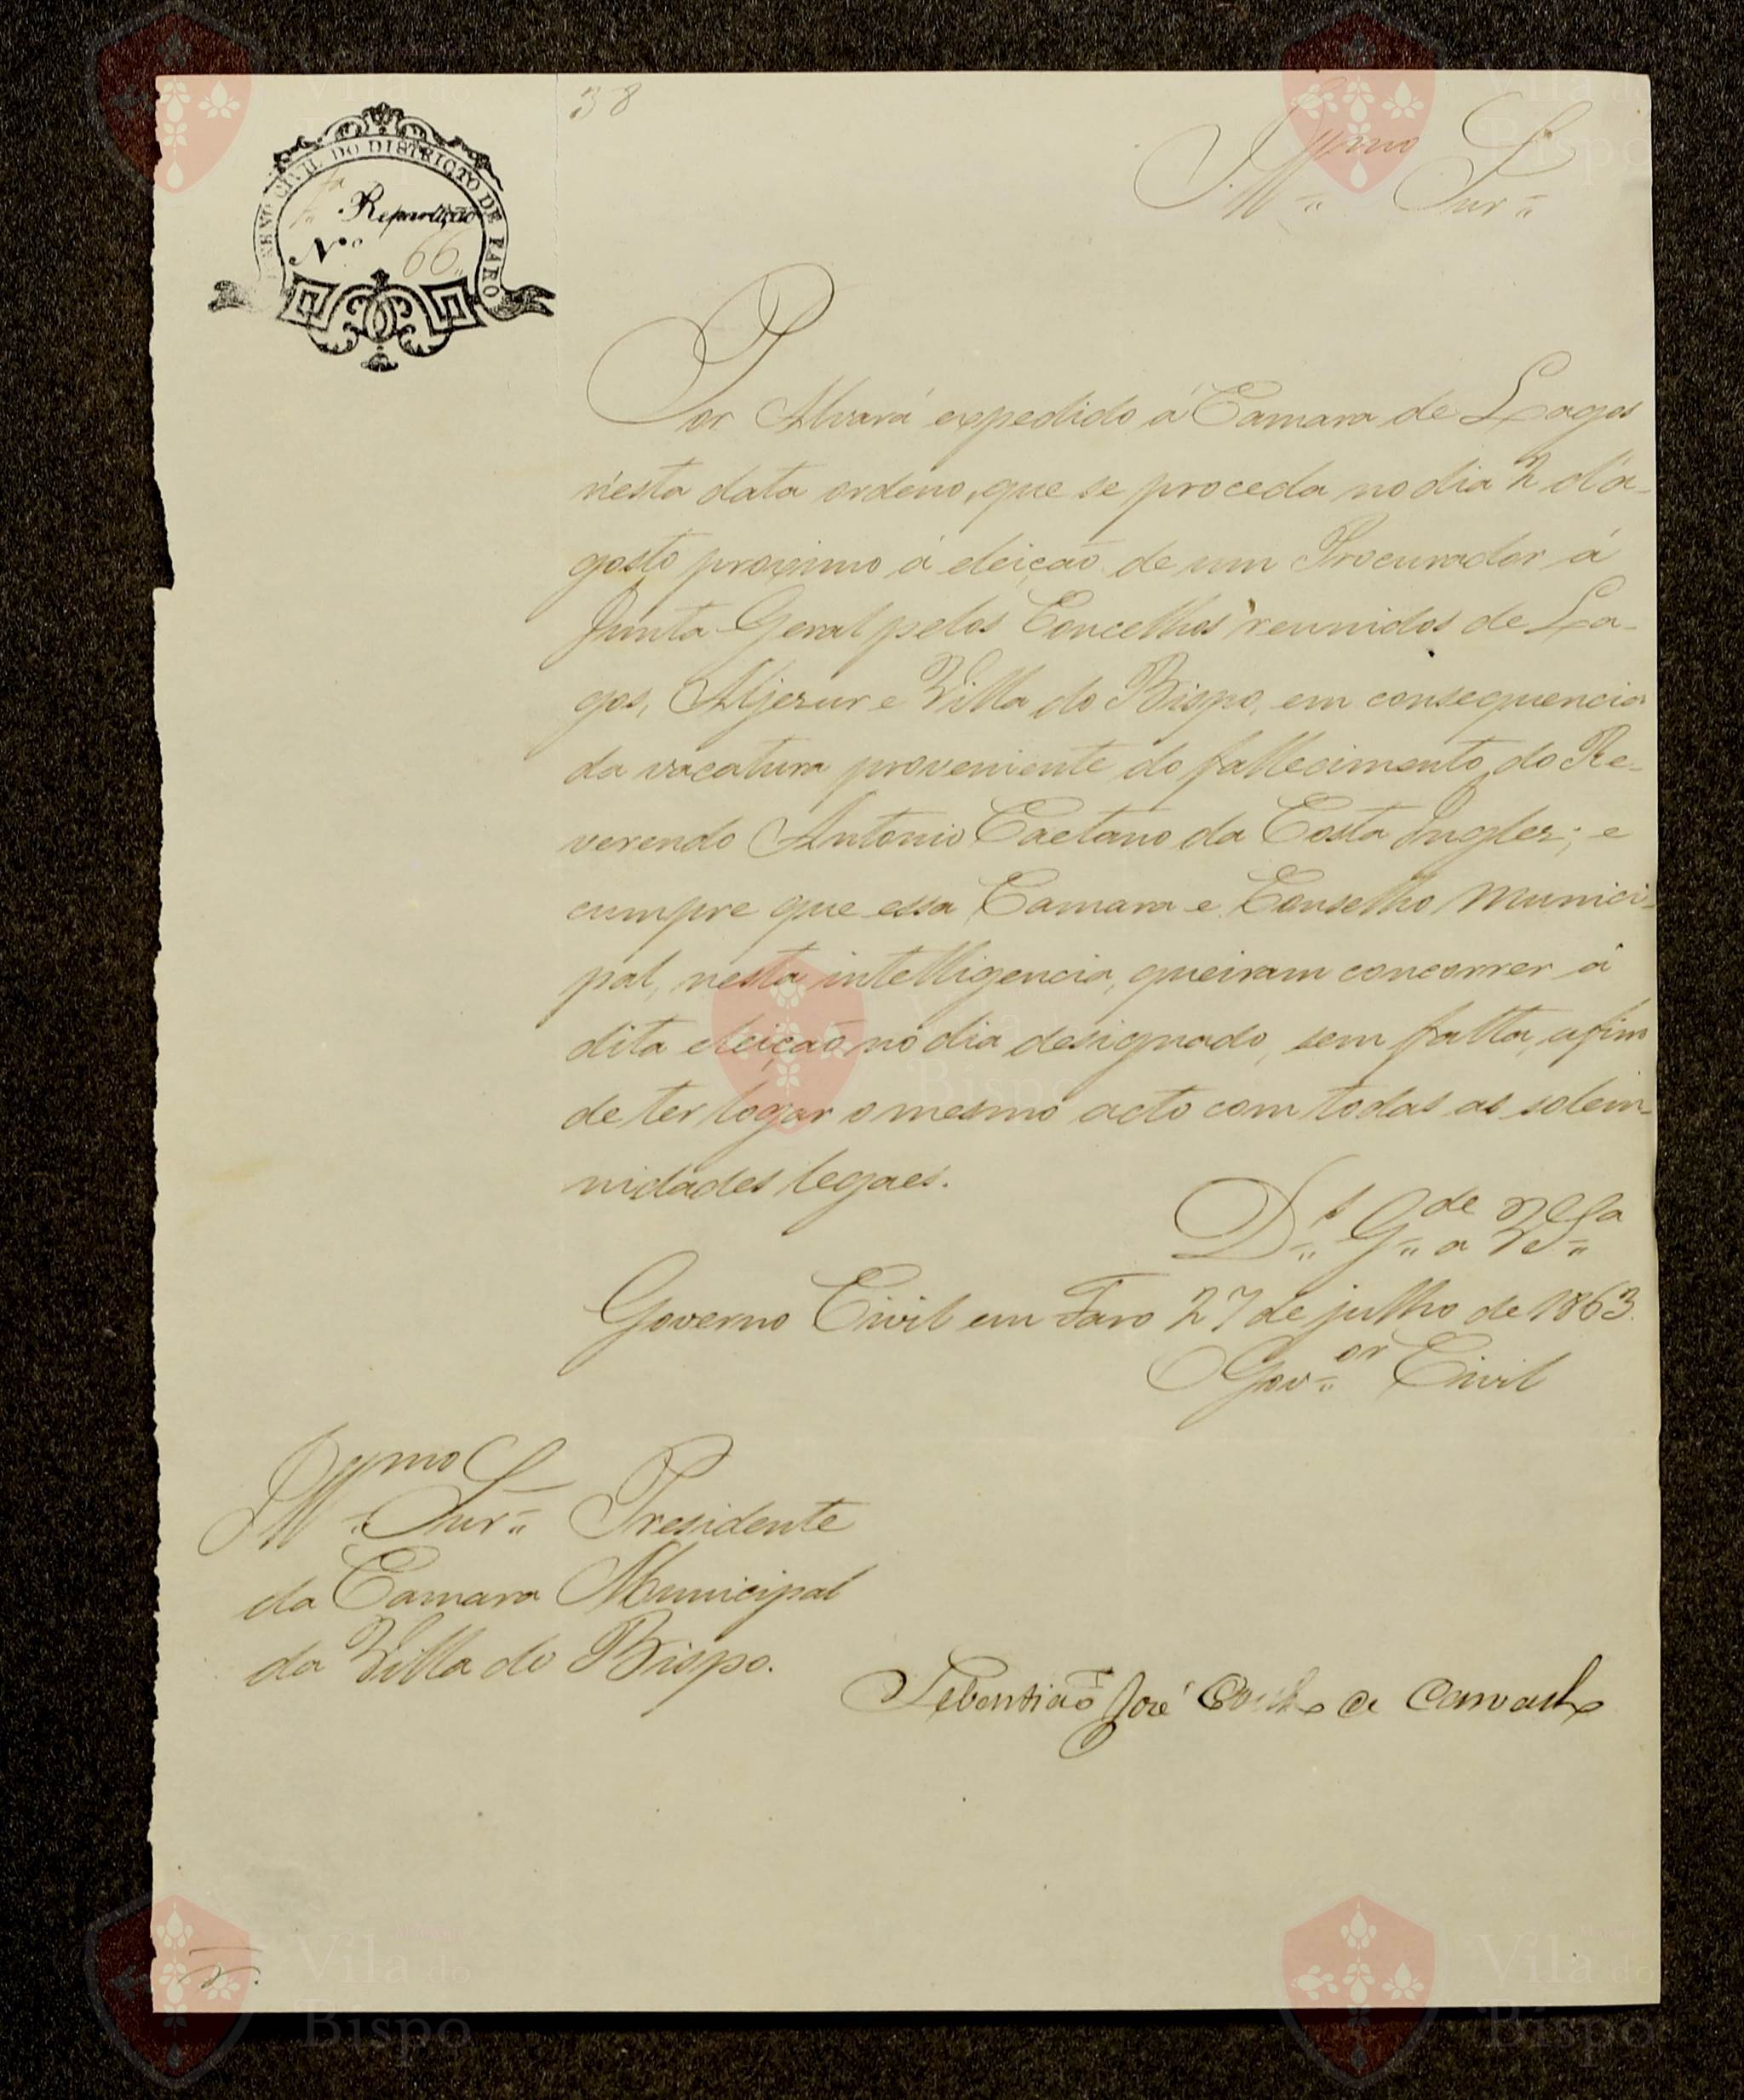 38
GOVERNO CIVIL DO DISTRICTO DE FARO
1.ª Repartição
N.º 66
Ill.mo Snr.
Por Alvará expedido á Camara de Lagos
n'esta data ordeno, que se proceda no dia 2 d'a-
gosto proximo á eleição de um Procurador á
Junta Geral pelos Concelhos reunidos de La-
gos, Aljezur e Villa do Bispo, em consequencia
da vacatura proveniente do fallecimento do Re-
verendo Antonio Caetano da Costa Inglez; e
cumpre que essa Camara e Conselho Munici-
pal, nesta intelligencia, queiram concorrer á
dita eleição no dia designado, sem falta, afim
de ter logar o mesmo acto com todas as solem-
nidades legaes.
D.s G.de a V. S.a
Governo Civil em Faro 27 de julho de 1863.
O Gov.or Civil
Ill.mo Snr. Presidente
da Camara Municipal
da Villa do Bispo.
Sebastião José Coelho de Carvalho
Vila do Bispo
Vila do Bispo
Vila do Bispo
Vila do Bispo
Vila do Bispo